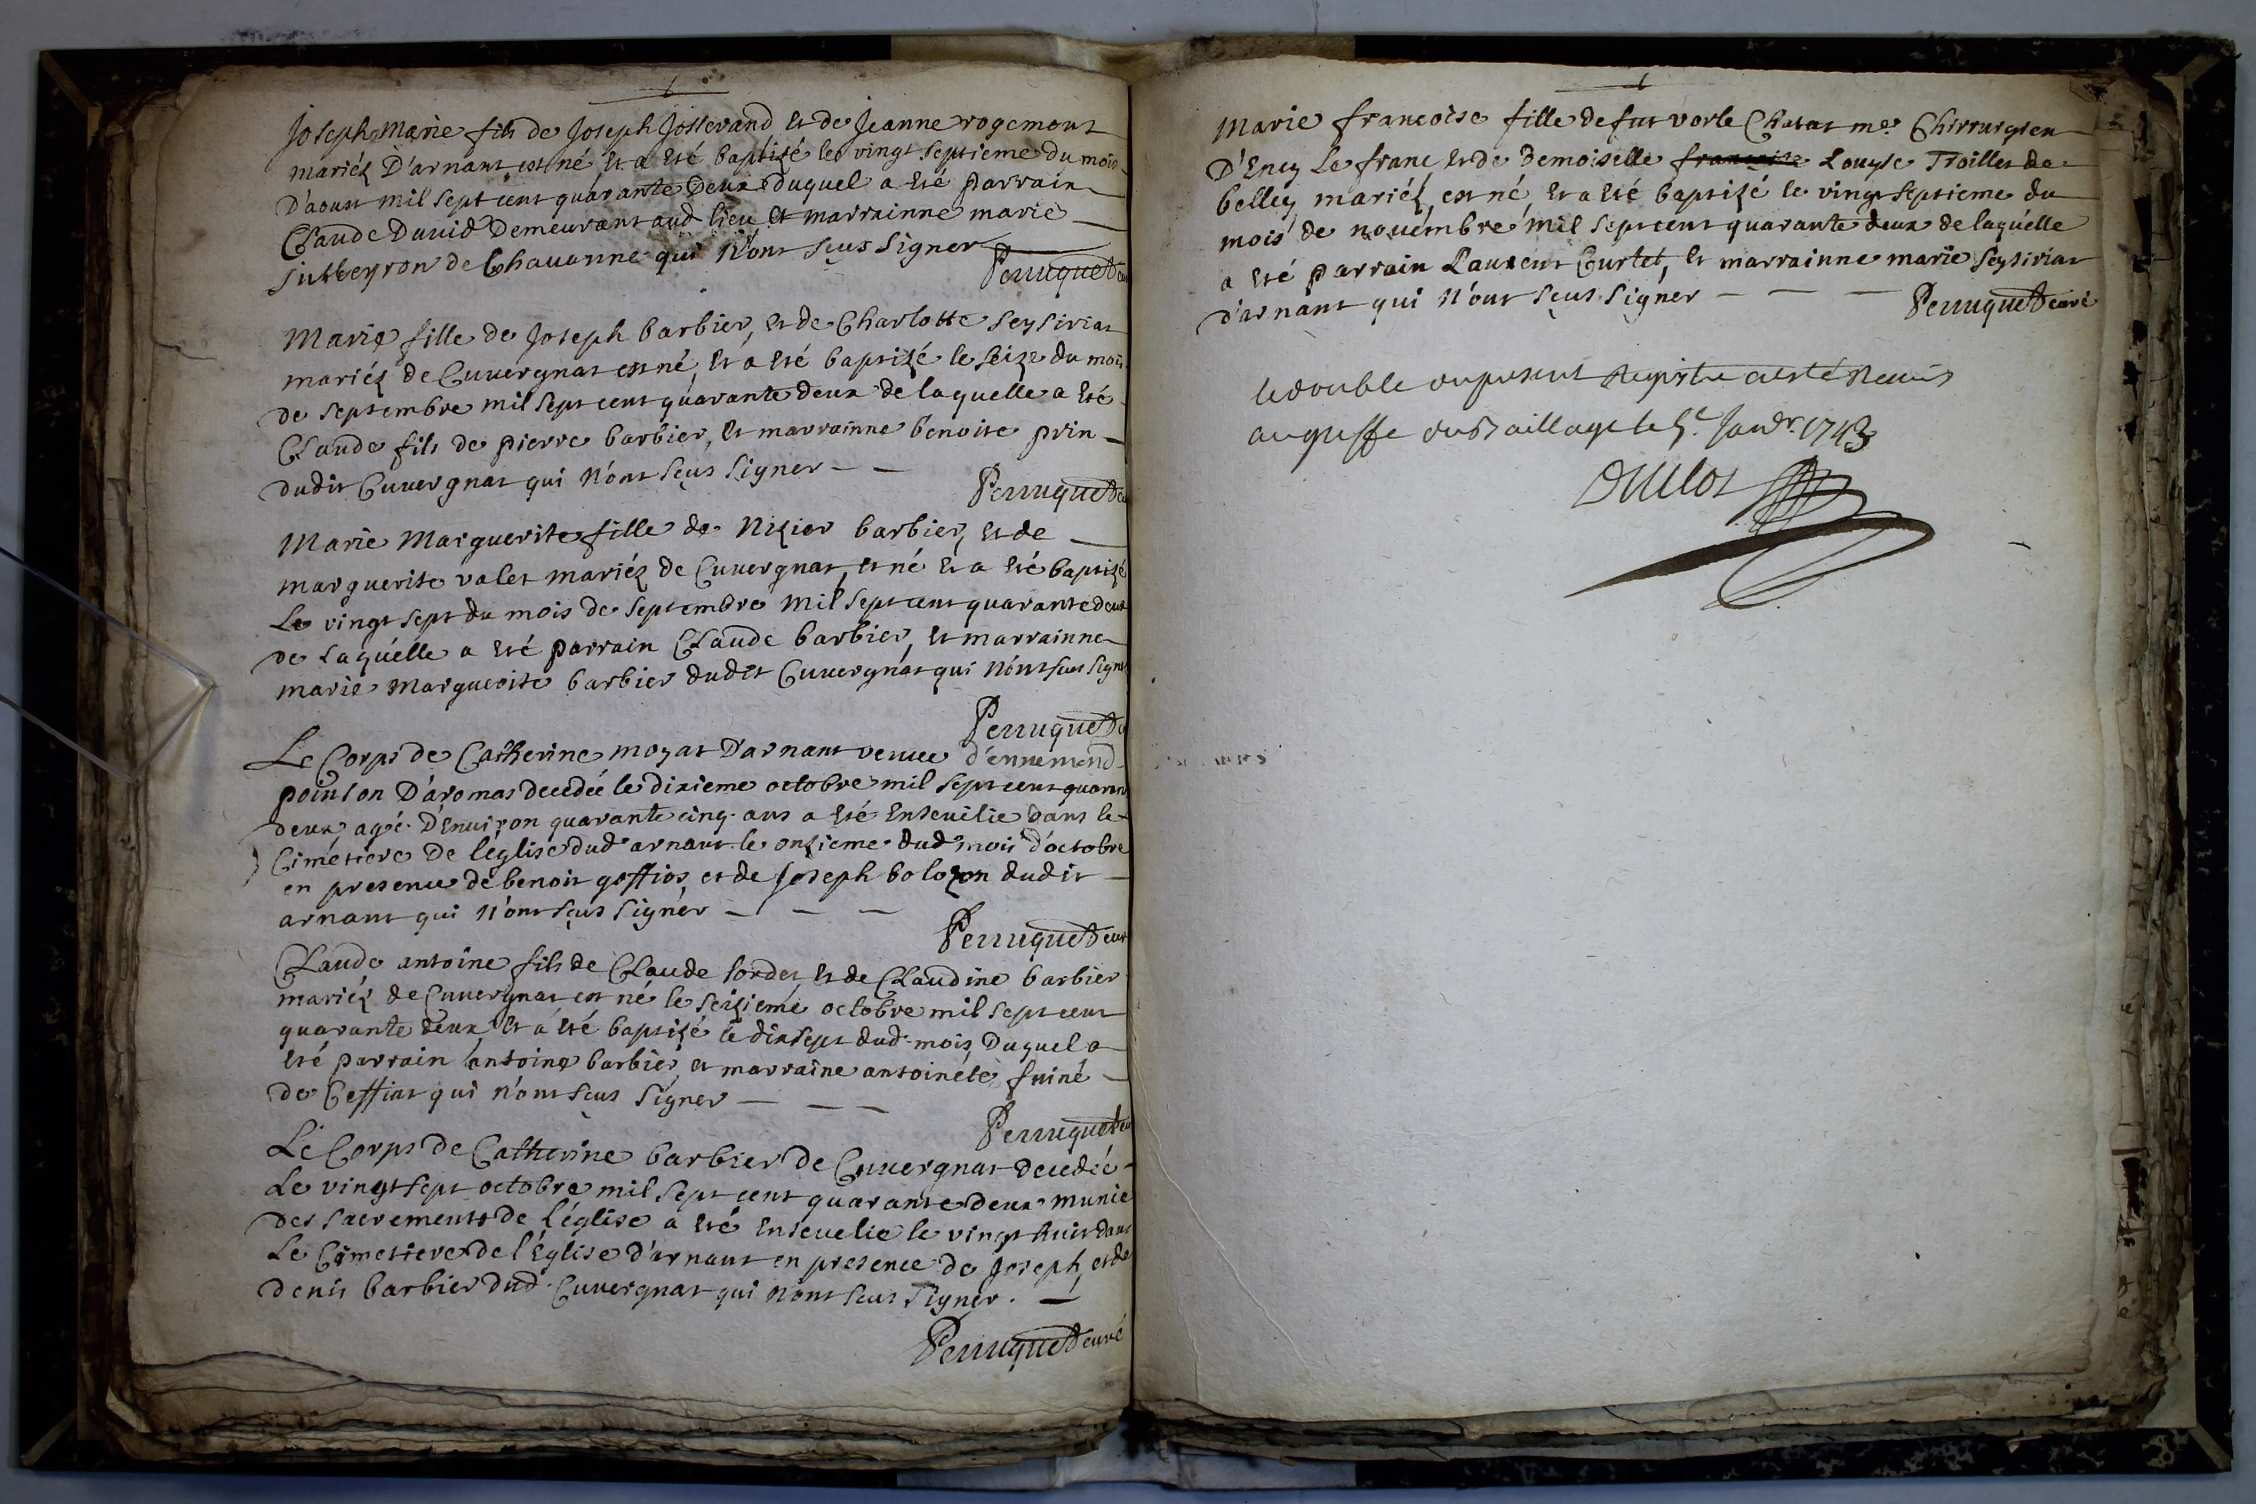 Joseph Marie fils de Joseph Josserand et de Jeanne rogemont
mariéz D'arnant est né et a eté baptizé le vingt septieme du mois
D'aoust mil sept cent quarante Deux duquel a eté parrain
Claude David Demeurant aud lieu et marrainne marie
de Chavanne qui N'ont sçus signer
Perruquet
Marie fille de Joseph barbier, et de Charlotte seysiriat
mariéz de Cuvergnat est né, et a eté baptizé le seize du mois
de septembre mil sept cent quarante deux de laquelle a eté
Claude fils de pierre barbier, et marrainne benoite prin
dudit Cuvergnat qui N'ont sçus signer
Perruquet
Marie Marguerite fille de Nizier barbier, et de
marguerite valet mariéz de Cuvergnat, et né et a eté baptizé
Le vingt sept du mois de septembre mil sept cent quarante deux
de laquelle a eté parrain Claude barbier, et marrainne
marie Marguerite barbier dudit Cuvergnat qui N'ont sçus signe
Perruquet
Le Corps de Catherine mozat D'arnant veuve d'ennemond
pointon D'aromas decedée le dixieme octobre mil sept cent quarante
deux agé D'environ quarante cinq ans a eté Enseuilie dans le
Cimetiere De l'église dud arnant le onzieme dud mois d'octobre
en presence de benoit goffioz, et de Joseph bolozon dudit
arnant qui N'ont sçus signér
Perruquet curé
Claude antoine fils de Claude sordet, et de Claudine barbier
mariéz de Cuvergnat est né le seizieme octobre mil sept cent
quarante deux, et a eté baptizé le dixsept dud. mois, Duquel a
eté parrain antoine barbier, et marraine antoinéte
de Ceffiat qui n'ont sçus signer
Perruquet
Le Corps de Catherine barbier de Cuvergnat decedée
Le vingt sept octobre mil sept cent quarante deux munie
des sacrements de L'église a eté ensevelie le vingt huit dans
Le Cimetiere de l'Eglise d'arnant en presence de Joseph, et de
denis barbier dud. Cuvergnat qui N'ont sçus signer.
Perruquet curé
Marie francoise fille de fut vorle Chatat me. Chirrurgien
D'Ency Le franc, et de Demoiselle francoise Louyse Troillet de
belley mariéz, est né, et a eté baptizé le vingt septieme du
mois de novembre mil sept cent quarante deux de laquelle
a eté parrain Laurent Curtet, et marrainne marie seysiriat
d'arnant qui N'ont sçus signer
Perruquet curé
le double du present Registre a esté Remis
au greffe du Baillage le 5e. Janvr. 1743